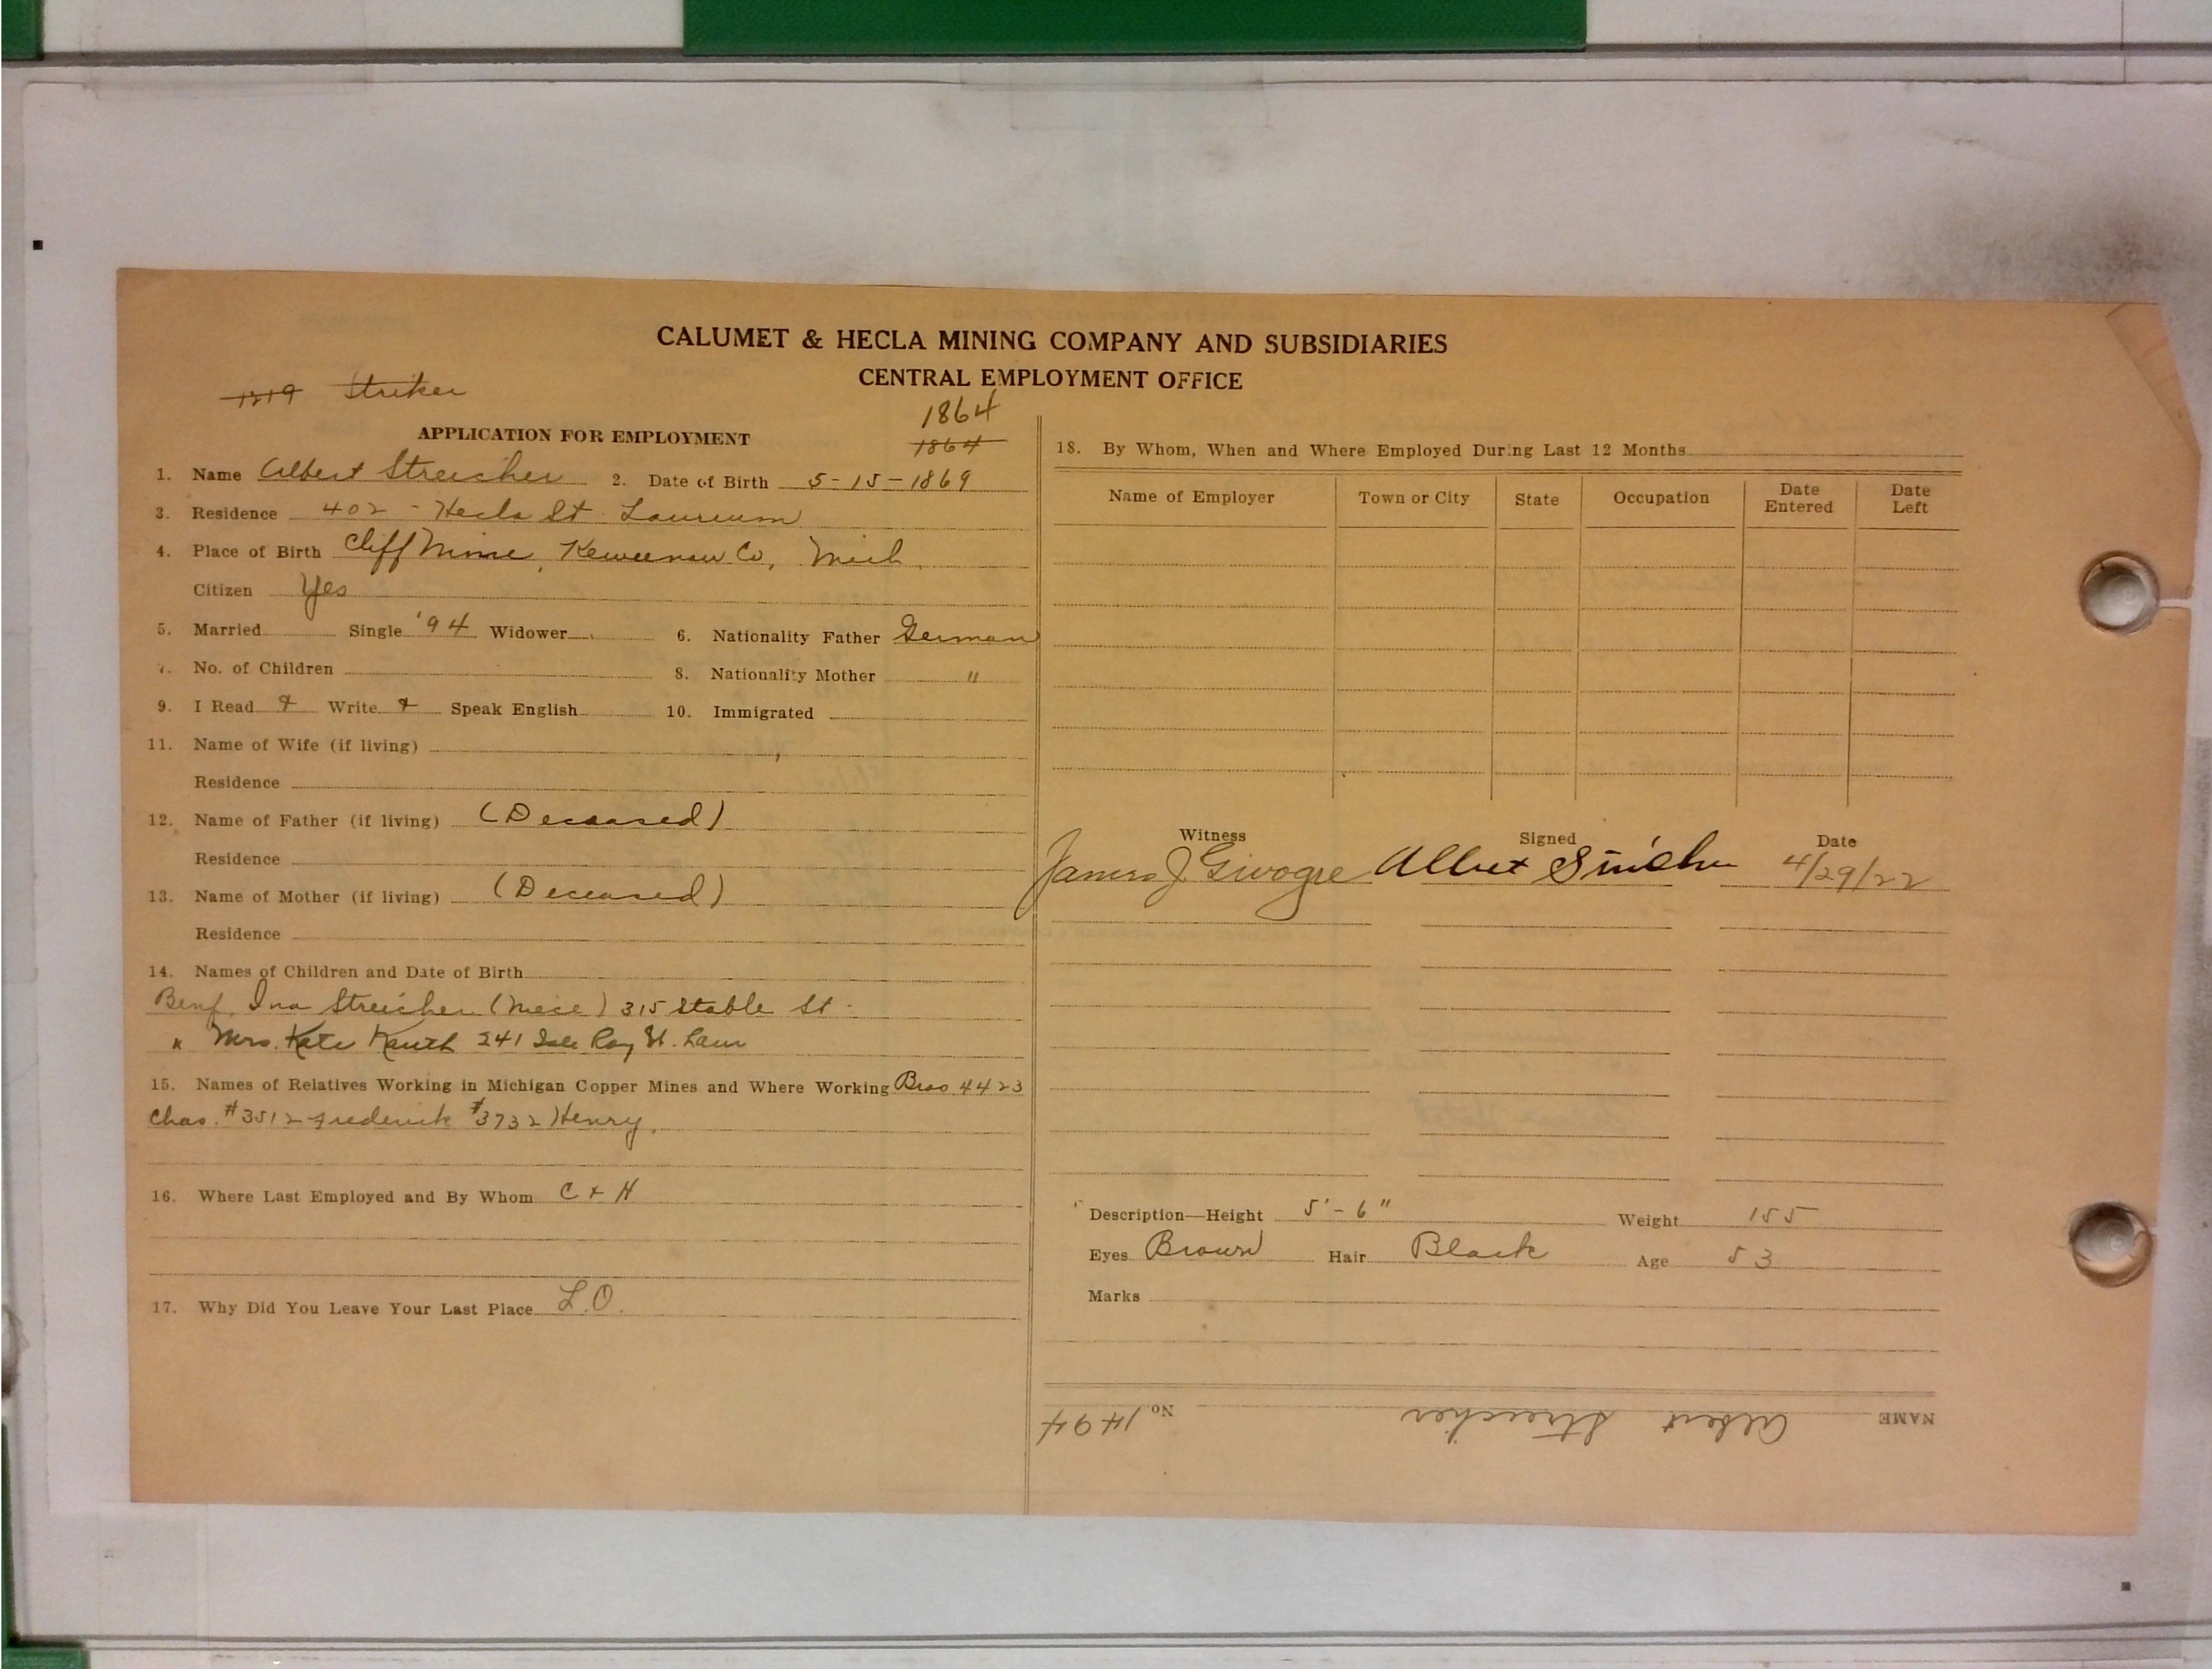 CALUMET & HECLA MINING COMPANY AND SUBSIDIARIES
CENTRAL EMPLOYMENT OFFICE
1219 Striker
1864
APPLICATION FOR EMPLOYMENT
1864
1. Name Albert Streicher 2. Date of Birth 5-15-1869
3. Residence 402 - Hecla St Laurium
4. Place of Birth Cliff Mine, Keweenaw Co, Mich
Citizen Yes
5. Married Single '94 Widower 6. Nationality Father German
7. No. of Children 8. Nationality Mother "
9. I Read & Write & Speak English 10. Immigrated
11. Name of Wife (if living)
Residence
12. Name of Father (if living) (Deceased)
Residence
13. Name of Mother (if living) (Deceased)
Residence
14. Names of Children and Date of Birth
Benf. Ina Streicher (niece) 315 Stable St
" Mrs. Kate Kauth 241 Isle Roy St. Laur
15. Names of Relatives Working in Michigan Copper Mines and Where Working Bros 4423
Chas. #3512 Frederick #3732 Henry.
16. Where Last Employed and By Whom C & H
17. Why Did You Leave Your Last Place L.O.
18. By Whom, When and Where Employed During Last 12 Months
Name of Employer Town or City State Occupation Date Entered Date Left
Witness Signed Date
James J Albert Streicher 4/29/22
Description—Height 5'-6" Weight 155
Eyes Brown Hair Black Age 53
Marks
NAME Albert Streicher No 1494